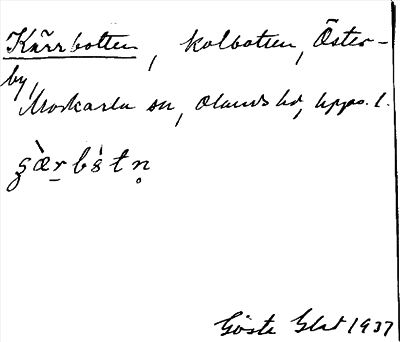 Kärrbotten, kolbotten, Öster-
by,
Morkarla sn, Olands hd, Upps. l.
Gösta Glat 1937